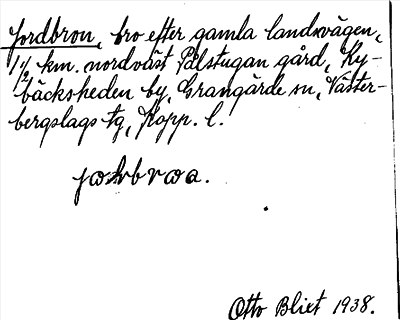 Jordbron, bro efter gamla landsvägen,
1 1/2 km. nordväst Pålstugan gård, Ky-
bäcksheden by, Grangärde sn, Väster-
bergslags tg, Kopp. l.
Otto Blixt 1938.